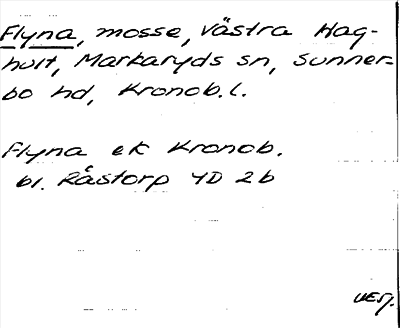 Flyna, mosse, Västra Hag-
hult, Markaryds sn, Sunner-
bo hd, Kronob. l.
Flyna ek Kronob.
bl. Råstorp 4D 2b